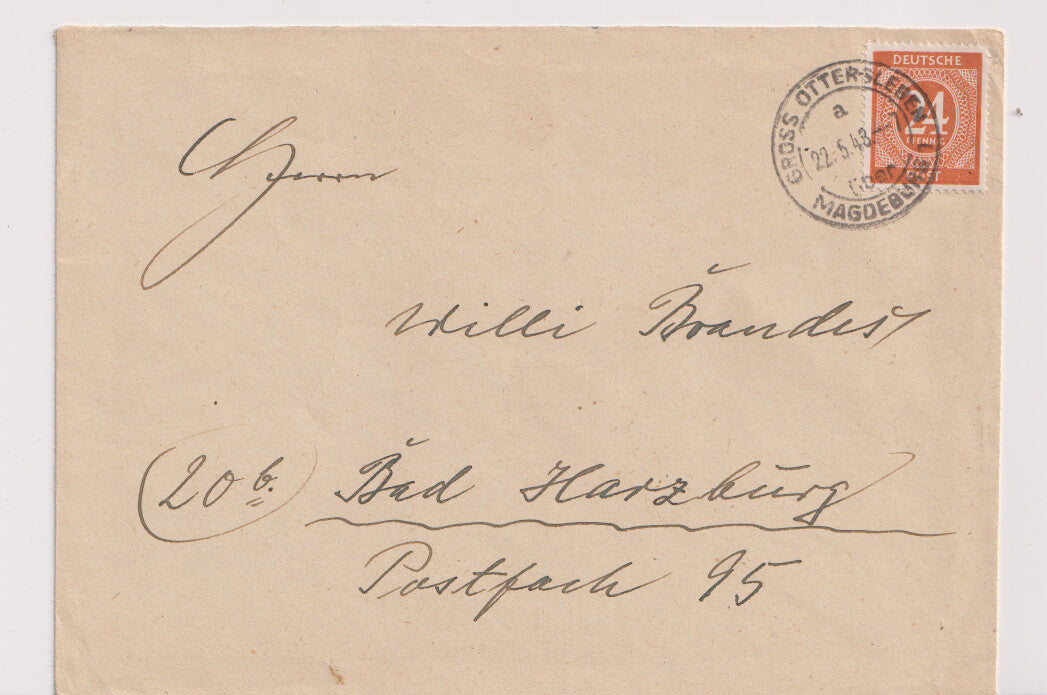 DEUTSCHE
24
PFENNIG
POST
GROSS OTTERSLEBEN
a
22.6.48.-7
über
MAGDEBURG 1
Herrn
Willi Brandes
(20 b.) Bad Harzburg
Postfach 95